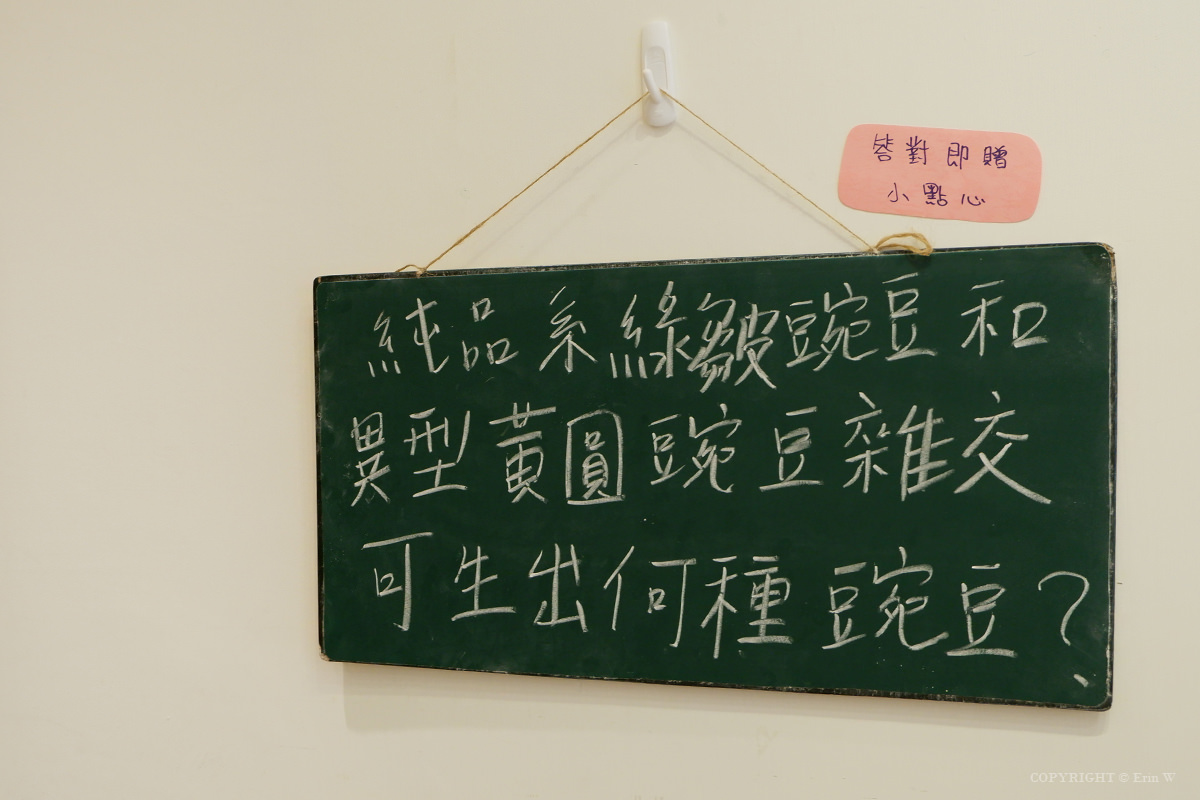 答對即贈
小點心
純品系綠皺豌豆和
異型黃圓豌豆雜交
可生出何種豌豆?
COPYRIGHT © Erin W